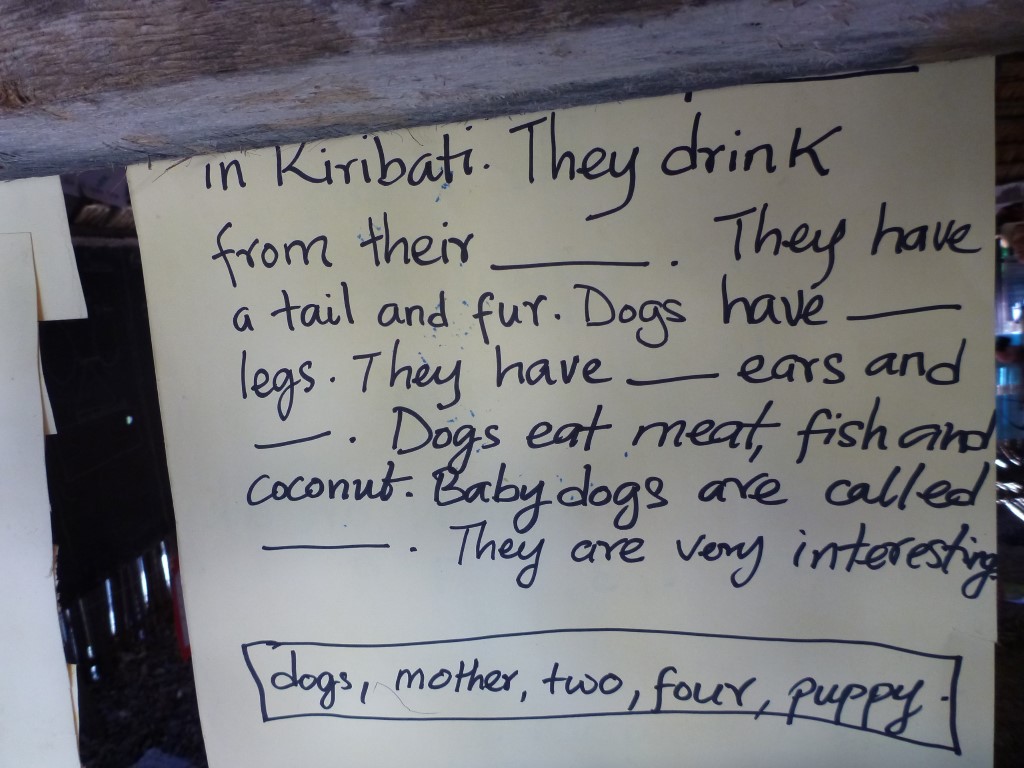 in Kiribati. They drink
from their ______. They have
a tail and fur. Dogs have ____
legs. They have ___ ears and
___. Dogs eat meat, fish and
coconut. Baby dogs are called
_____. They are very interesting.
dogs, mother, two, four, puppy.